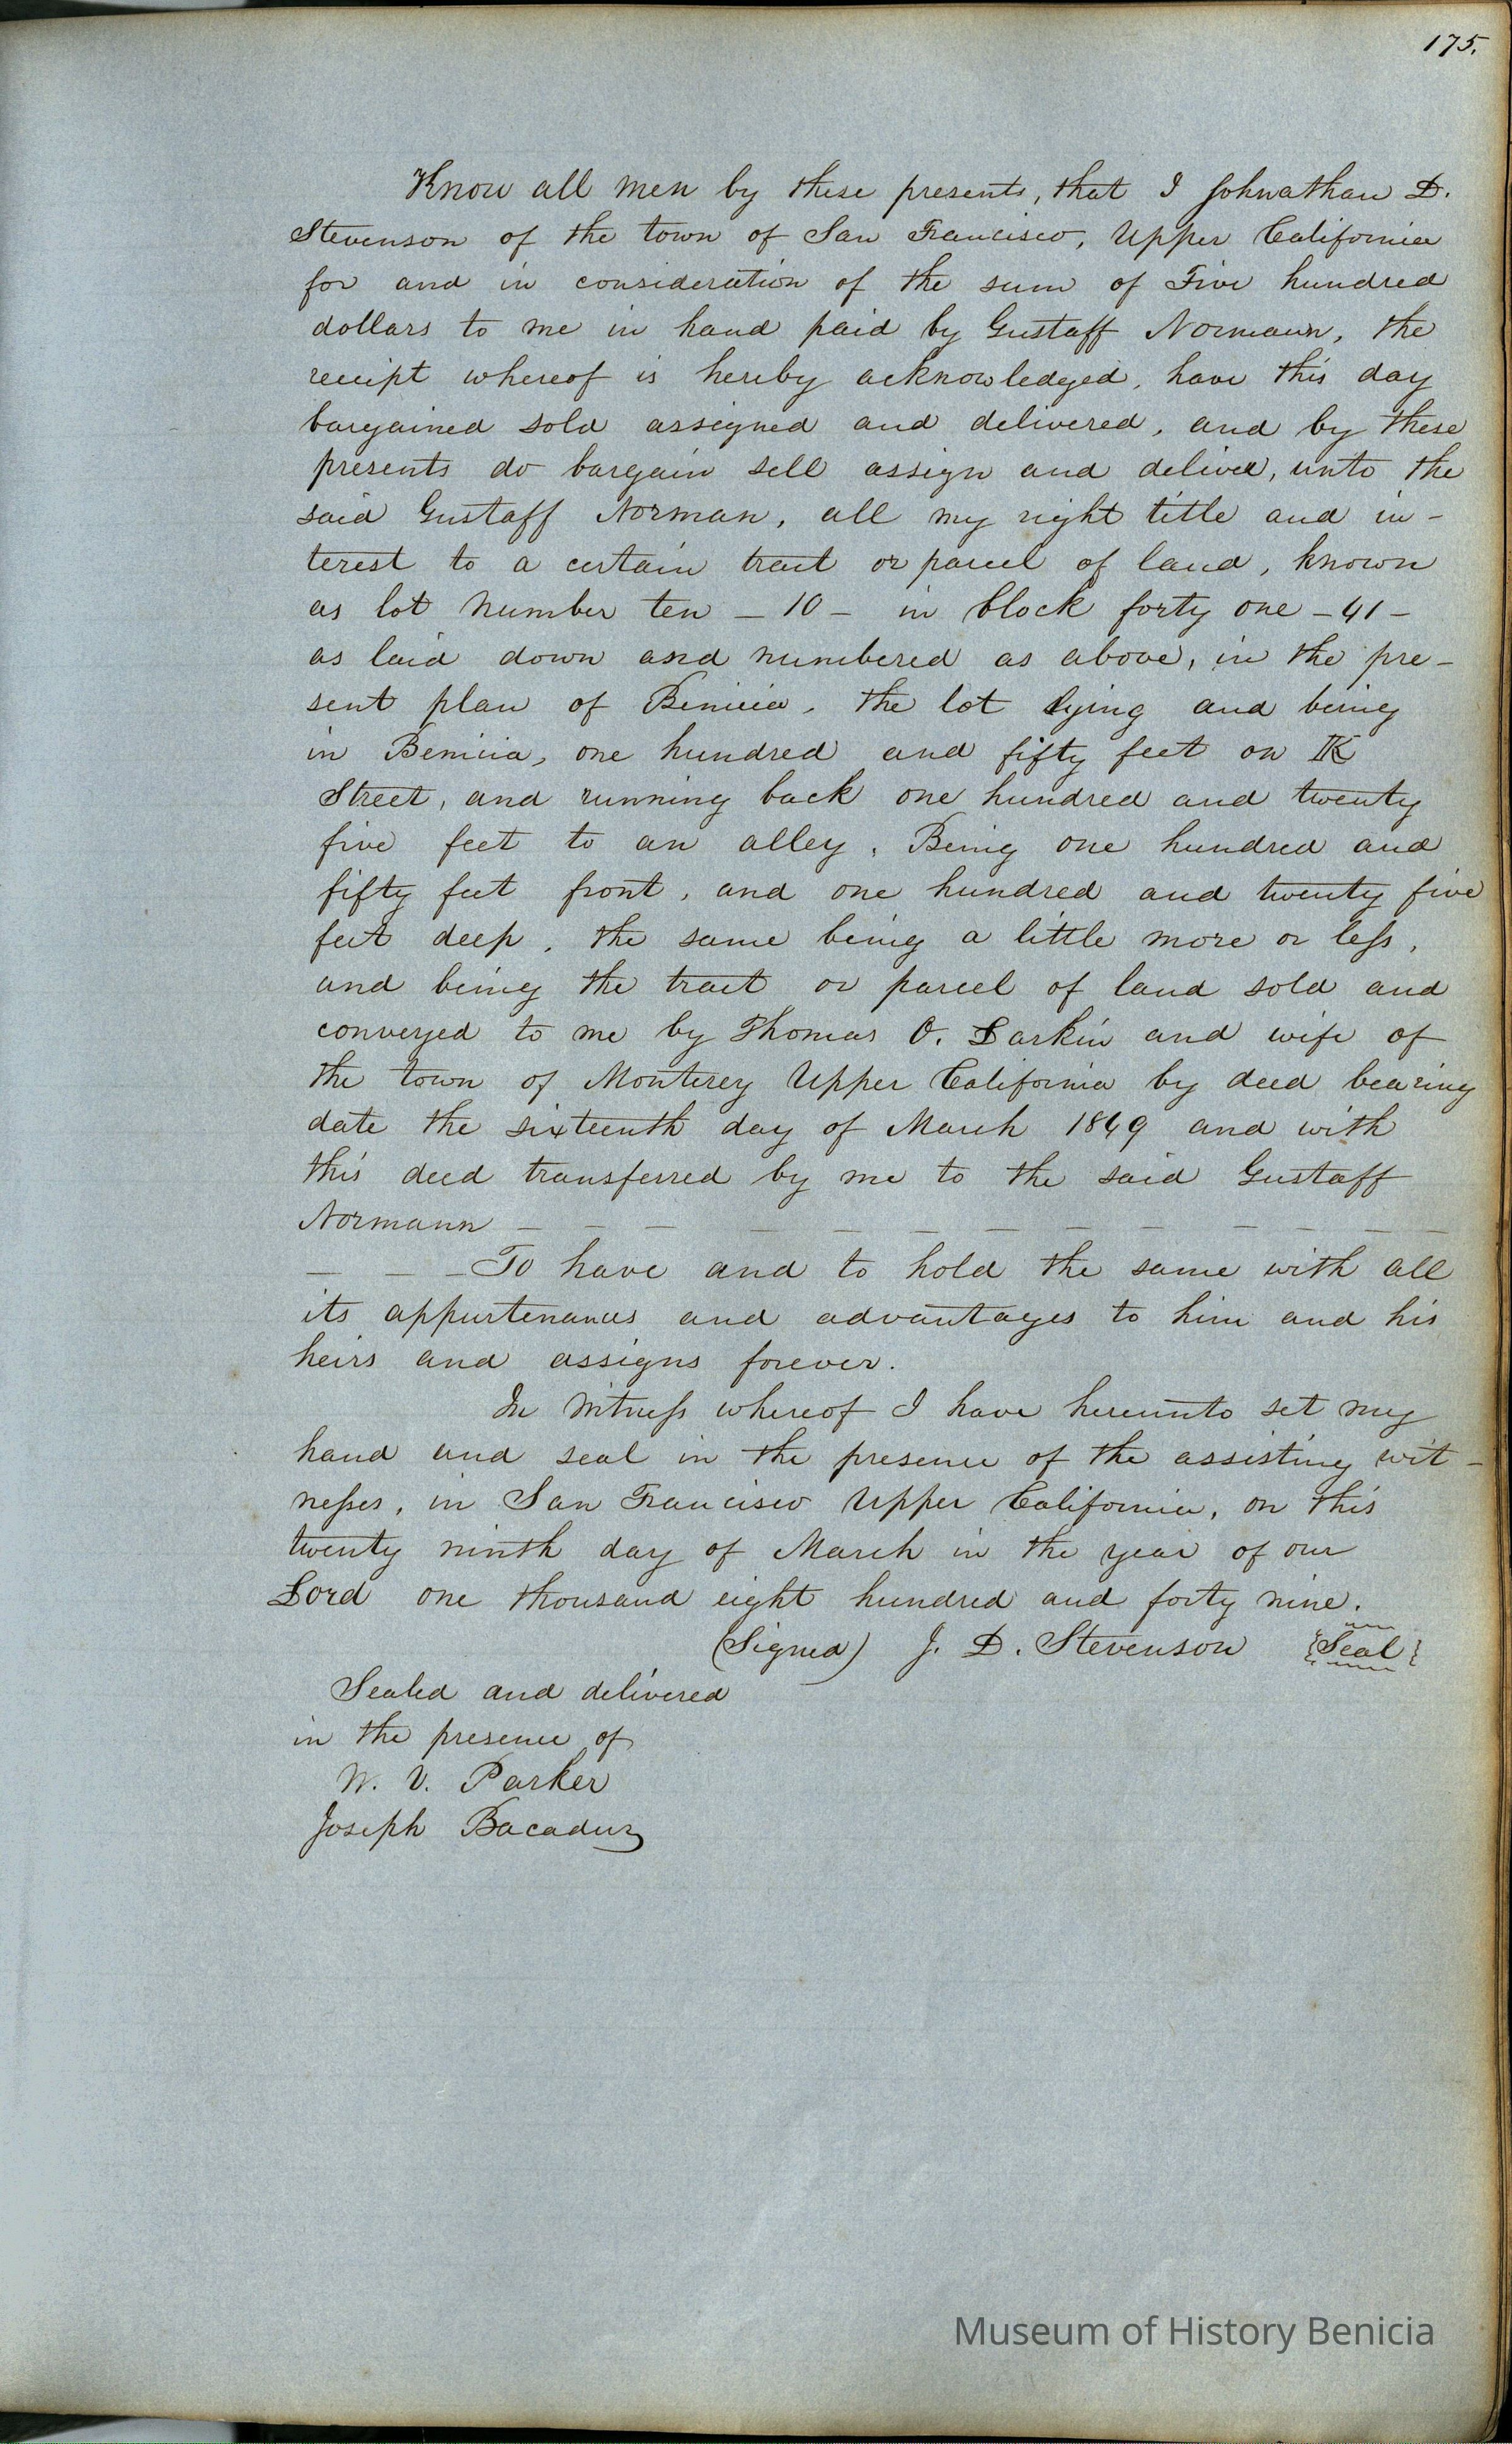 175.
Know all men by these presents, that I Johnathan D.
Stevenson of the town of San Francisco, Upper California
for and in consideration of the sum of Five hundred
dollars to me in hand paid by Gustaff Normann, the
receipt whereof is hereby acknowledged, have this day
bargained sold assigned and delivered, and by these
presents do bargain sell assign and deliver, unto the
said Gustaff Norman, all my right title and in-
terest to a certain tract or parcel of land, known
as lot number ten - 10 - in block forty one - 41 -
as laid down and numbered as above, in the pre-
sent plan of Benicia, the lot lying and being
in Benicia, one hundred and fifty feet on K
Street, and running back one hundred and twenty
five feet to an alley, Being one hundred and
fifty feet front, and one hundred and twenty five
feet deep, the same being a little more or less,
and being the tract or parcel of land sold and
conveyed to me by Thomas O. Larkin and wife of
the town of Monterey Upper California by deed bearing
date the sixteenth day of March 1849 and with
this deed transferred by me to the said Gustaff
Normann - - - - - - - - - - - -
- - - To have and to hold the same with all
its appurtenances and advantages to him and his
heirs and assigns forever.
In Witness whereof I have hereunto set my
hand and seal in the presence of the assisting wit-
nesses, in San Francisco Upper California, on this
twenty ninth day of March in the year of our
Lord one thousand eight hundred and forty nine.
(Signed) J. D. Stevenson {Seal}
Sealed and delivered
in the presence of
W. V. Parker
Joseph Bacaduz
Museum of History Benicia